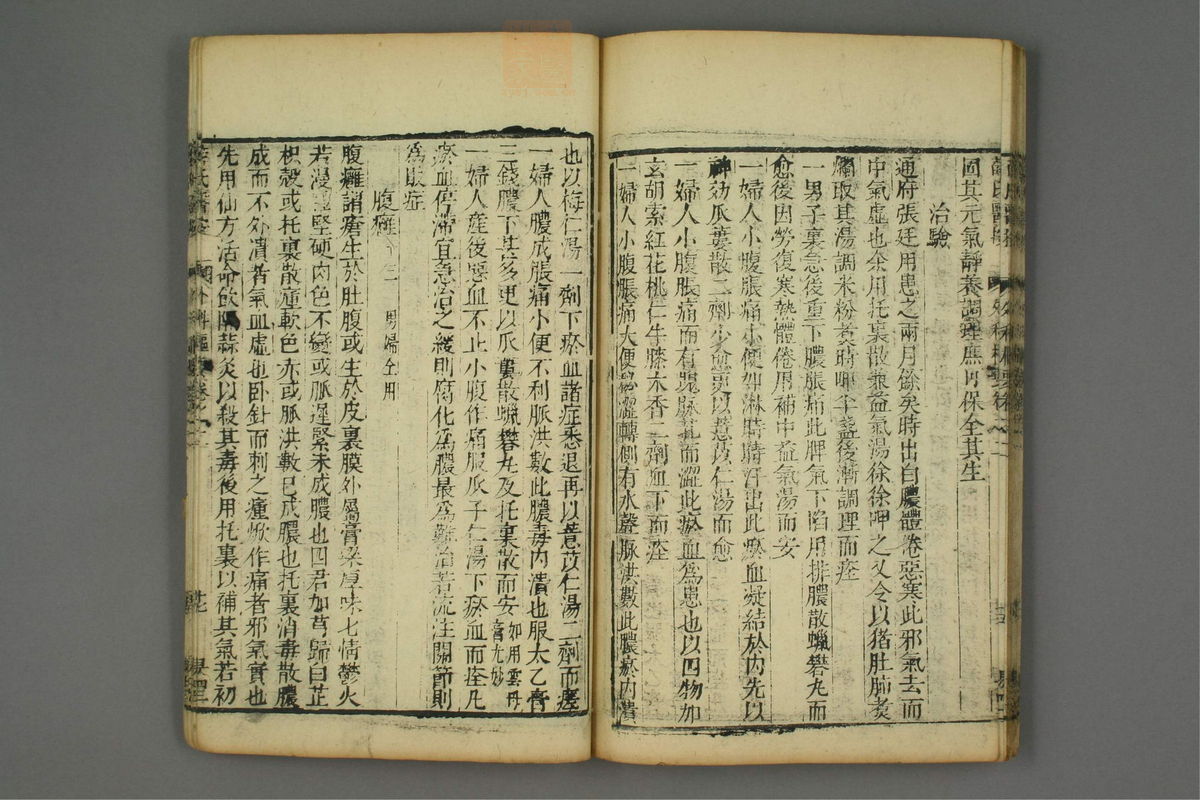 固其元氣靜養調理庶可保全其生
治驗
通府張廷用患之兩月餘矣時出白膿體倦惡寒此邪氣去而
中氣虛也余用托裏散兼益氣湯徐徐呷之又令以猪肚肺煑
爛取其湯調米粉煑時呷半盞後漸調理而痊
一男子裏急後重下膿脹痛此脾氣下陷用排膿散蠟礬丸而
愈後因勞復寒熱體倦用補中益氣湯而安
一婦人小腹脹痛小便如淋時時汗出此瘀血凝結於內先以
神効瓜蔞散二劑少愈更以薏苡仁湯而愈
一婦人小腹脹痛而有塊脉芤而澀此瘀血為患也以四物加
玄胡索紅花桃仁牛膝木香二劑血下而痊
一婦人小腹脹痛大便秘澀轉側有水聲脉洪數此膿瘀內潰
也以梅仁湯一劑下瘀血諸症悉退再以薏苡仁湯二劑而痊
一婦人膿成脹痛小便不利脈洪數此膿毒內潰也服太乙膏
三錢膿下甚多更以瓜蔞散蠟礬丸及托裏散而安如用雲母膏尤妙
一婦人產後惡血不止小腹作痛服瓜子仁湯下瘀血而痊凡
瘀血停滯宜急治之緩則腐化為膿最為難治若流注關節則
為敗症
腹癰 三 男婦仝用
腹癰謂瘡生於肚腹或生於皮裏膜外屬膏粱厚味七情鬱火
若漫腫堅硬肉色不變或脈遲緊未成膿也四君加芎歸白芷
枳殼或托裏散腫軟色赤或脈洪數已成膿也托裏消毒散膿
成而不外潰者氣血虛也臥針而刺之腫焮作痛者邪氣實也
先用仙方活命飲隔蒜灸以殺其毒後用托裏以補其氣若初